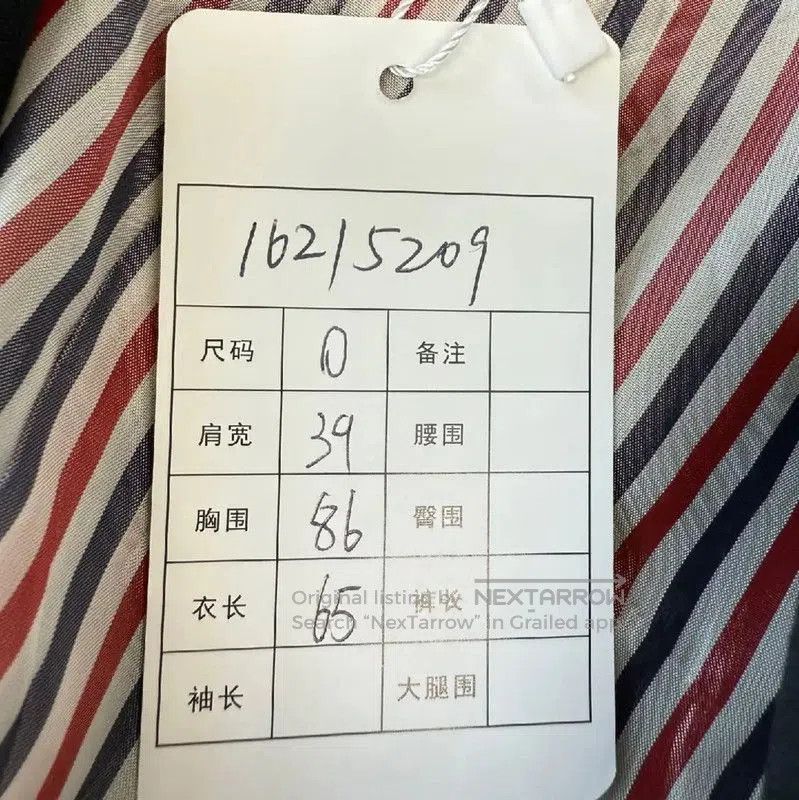 16215209
尺码 0 备注
肩宽 39 腰围
胸围 86 臀围
衣长 65 裤长
袖长 大腿围
Original listing by NEXTARROW
Search "NexTarrow" in Grailed app